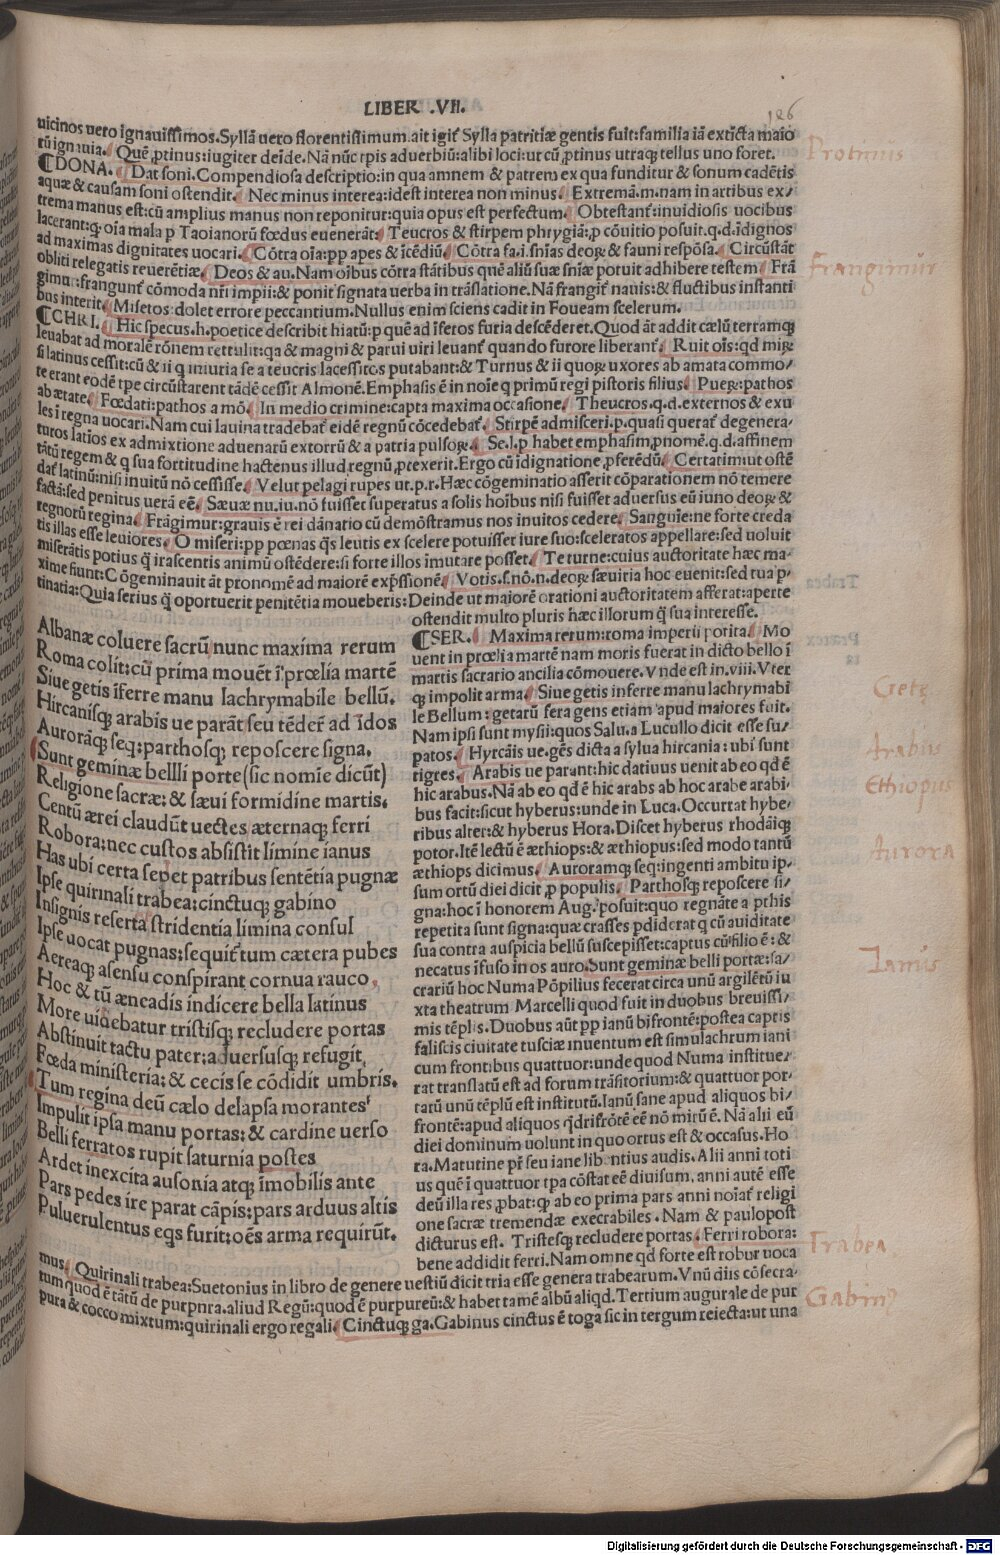 LIBER .VII.
126
uicinos uero ignauissimos.Syllā uero florentissimum.ait igit̄ Sylla patritiæ gentis fuit:familia iā extīcta maio
tū ignauia. Quē ꝓtinus:iugiter deīde. Nā nūc tꝑis aduerbiū:alibi loci:ut cū ꝓtinus utraqꝫ tellus uno foret.
¶DONA. Dat soni. Compendiosa descriptio:in qua amnem & patrem ex qua funditur & sonum cadētis
aquæ & causam soni ostendit. Nec minus interea:idest interea non minus. Extremā.m.nam in artibus ex/
trema manus est:cū amplius manus non reponitur:quia opus est perfectum. Obtestant̄:inuidiosis uocibus
lacerant:qꝫ oīa mala p Taoianorū fœdus euenerāt: Teucros & stirpem phrygiā:ꝓ cōuitio posuit.q.d.īdignos
ad maximas dignitates uocari. Cōtra oīa:pp apes & īcēdiū. Cōtra fa.i.sīnias deoꝝ & fauni respōsa. Circūstāt
obliti relegatis reuerētiæ. Deos & au. Nam oibus cōtra stātibus quē aliū suæ sīniæ potuit adhibere testem Frā
gimur:frangunt̄ cōmoda nr̄i impii:& ponit signata uerba in trāslatione. Nā frangit̄ nauis:& fluctibus instanti
bus interit. Misetos:dolet errore peccantium. Nullus enim sciens cadit in Foueam scelerum.
¶CHRI. Hic specus.h.poetice describit hiatū:p quē ad īferos furia descēderet. Quod āt addit cælū terramqꝫ
leuabat ad moralē rōnem rettulit:qa & magni & parui uiri leuant̄ quando furore liberant̄. Ruit oīs:qd miꝝ
si latinus cessit:cū & ii q iniuria se a teucris lacessitos putabant:& Turnus & ii quoꝝ uxores ab amata commo/
te erant eodē tꝑe circūstarent tādē cessit Almonē. Emphasis ē in noīe q primū regi pistoris filius. Pueꝝ:pathos
ab ætate. Fœdati:pathos a mō. In medio crimine:capta maxima occasione. Theucros.q.d.externos & exu
les i regna uocari. Nam cui lauina tradebat̄ eidē regnū cōcedebat̄. Stirpē admisceri.p.quasi querat̄ degenera/
turos latios ex admixtione aduenarū extorrū & a patria pulsoꝝ. Se.l.p habet emphasim,pnomē.q.d.affinem
tātū regem & q sua fortitudine hactenus illud regnū ꝓtexerit. Ergo cū īdignatione ꝓferēdū. Certatim:ut ostē
dat̄ latinū:nisi inuitū nō cessisse. Velut pelagi rupes ut.p.r. Hæc cōgeminatio asserit cōparationem nō temere
factā:sed penitus uerā eē. Sæuæ nu.iu.nō fuisset superatus a solis hoībus nisi fuisset aduersus eū iuno deoꝝ &
regnorū regina. Frāgimur:grauis ē rei dānatio cū demōstramus nos inuitos cedere. Sanguīe:ne forte creda
tis illas esse leuiores. O miseri:pp pœnas q̄s leutis ex scelere potuisset iure suo:sceleratos appellare:sed uoluit
miserātis potius q̄ irascentis animū ostēdere:si forte illos imutare posset. Te turne:cuius auctoritate hæc ma-
xime fiunt:Cōgeminauit āt pronomē ad maiorē exp̄ssionē. Votis.s.nō.n.deoꝝ sæuitia hoc euenit:sed tua p-
tinatia:Quia serius q̄ oportuerit penitētia moueberis:Deinde ut maiorē orationi auctoritatem afferat:aperte
ostendit multo pluris hæc illorum q̄ sua interesse.
Albanæ coluere sacrū nunc maxima rerum
Roma colit:cū prima mouēt i prœlia martē
Siue getis īferre manu lachrymabile bellū.
Hircanisqꝫ arabis ue parāt seu tēder̄ ad īdos
Aurorāqꝫ seq:parthosqꝫ reposcere signa.
Sunt geminæ bellli porte(sic nomīe dicūt)
Religione sacræ:& sæui formidine martis.
Centū ærei claudūt uectes æternaqꝫ ferri
Robora:nec custos absistit limine ianus
Has ubi certa sedet patribus sentētia pugnæ
Ipse quirinali trabea:cinctuqꝫ gabino
Insignis reserta stridentia limina consul
Ipse uocat pugnas:sequit̄ tum cætera pubes
Aereaqꝫ asensu conspirant cornua rauco,
Hoc & tū æneadis indicere bella latinus
More uidebatur tristisqꝫ recludere portas
Abstinuit tactu pater:aduersusqꝫ refugit
Fœda ministeria:& cecis se cōdidit umbris.
Tum regina deū cælo delapsa morantes
Impulit ipsa manu portas:& cardine uerso
Belli ferratos rupit saturnia postes
Ardet inexcita ausonia atqꝫ īmobilis ante
Pars pedes ire parat cāpis:pars arduus altis
Puluerulentus eq̄s furit:oēs arma requirūt.
¶SER. Maxima rerum:roma imperii potita. Mo
uent in prœlia martē nam moris fuerat in dicto bello ī
martis sacrario ancilia cōmouere. Vnde est in.viii. Vter
qꝫ impolit arma. Siue getis inferre manu lachrymabi
le Bellum:getarū fera gens etiam apud maiores fuit.
Nam ipsi sunt mysii:quos Salu.a Lucullo dicit esse su/
patos. Hyrcāis ue.gēs dicta a sylua hircania:ubi sunt
tigres. Arabis ue parant:hic datiuus uenit ab eo qd ē
hic arabus. Nā ab eo qd ē hic arabs ab hoc arabe arabi/
bus facit:sicut hyberus:unde in Luca. Occurtat hybe/
ribus alter:& hyberus Hora. Discet hyberus rhodāiqꝫ
potor. Itē lectū ē æthiops:& æthiopus:sed modo tantū
æthiops dicimus. Auroramqꝫ seq:ingenti ambitu ip/
sum ortū diei dicit ꝓ populis. Parthosqꝫ reposcere si/
gna:hoc ī honorem Aug.posuit:quo regnāte a pthis
repetita sunt signa:quæ crasses pdiderat q cū auiditate
sua contra auspicia bellū suscepisset:captus cū filio ē:&
necatus īfuso in os auro. Sunt geminæ belli portæ:sa/
crariū hoc Numa Pōpilius fecerat circa unū argiletū iu
xta theatrum Marcelli quod fuit in duobus breuissi/
mis tēplis. Duobus aūt pp ianū bifrontē:postea captis
faliscis ciuitate tusciæ inuentum est simulachrum iani
cum frontibus quattuor:unde quod Numa instituet/
rat translatū est ad forum trāsitorium:& quattuor por/
tarū unū tēplū est institutū. Ianū sane apud aliquos bi/
frontē:apud aliquos q̄drifrōtē eē nō mirū ē. Nā alii eū
diei dominum uolunt in quo ortus est & occasus. Ho
ra. Matutine pr̄ seu iane libentius audis. Alii anni toti
us quē ī quattuor tꝑa cōstat eē diuisum. anni autē esse
deū illa res ꝓbat:qꝫ ab eo prima pars anni noīat̄ religi
one sacræ tremendæ execrabiles. Nam & paulopost
dicturus est. Tristesqꝫ recludere portas. Ferri robora:
bene addidit ferri. Nam omne qd forte est robur uoca
mus. Quirinali trabea:Suetonius in libro de genere uestiū dicit tria esse genera trabearum. Vnū diis cōsecra-
tum quod ē tātū de purpnra.aliud Regū:quod ē purpureū:& habet tamē albū aliqd. Tertium augurale de pur
pura & cocco mixtum:quirinali ergo regali. Cinctuqꝫ ga. Gabinus cinctus ē toga sic in tergum reiecta:ut una
Protinus
Frangimur
Getę
Arabis
Ethiopus
Aurora
Ianus
Trabea
Gabinꝰ
Digitalisierung gefördert durch die Deutsche Forschungsgemeinschaft - DFG